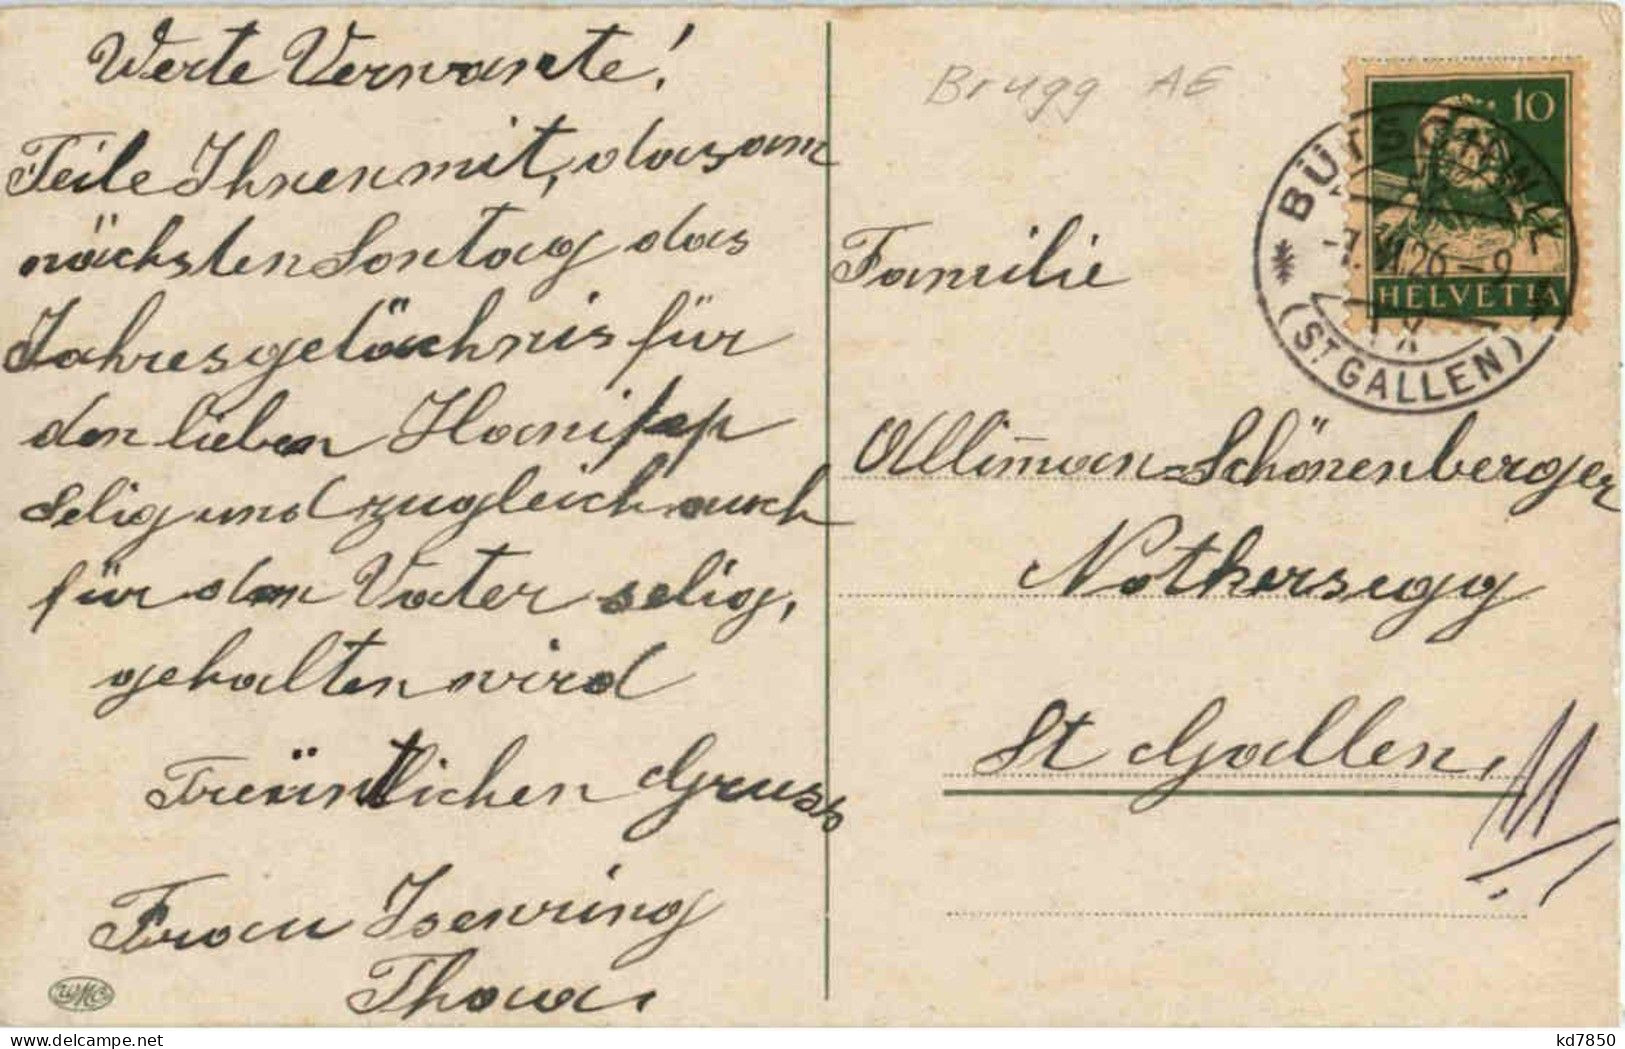 Werte Verwante!
Teile Ihnen mit, das am
nächsten Sontag das
Jahresgetächnis für
den lieben Hanisep
selig und zugleich auch
für den Vater selig,
gehalten wird
Freüntlichen Gruss
Frau Isenring
Thoua.
WMB
Brugg AE
10
HELVETIA
BÜTSCHWIL
-7.VI.26-9
(ST. GALLEN)
Familie
Allim̅an-Schönenberger
Nothersegg
St Gallen,
kd7850